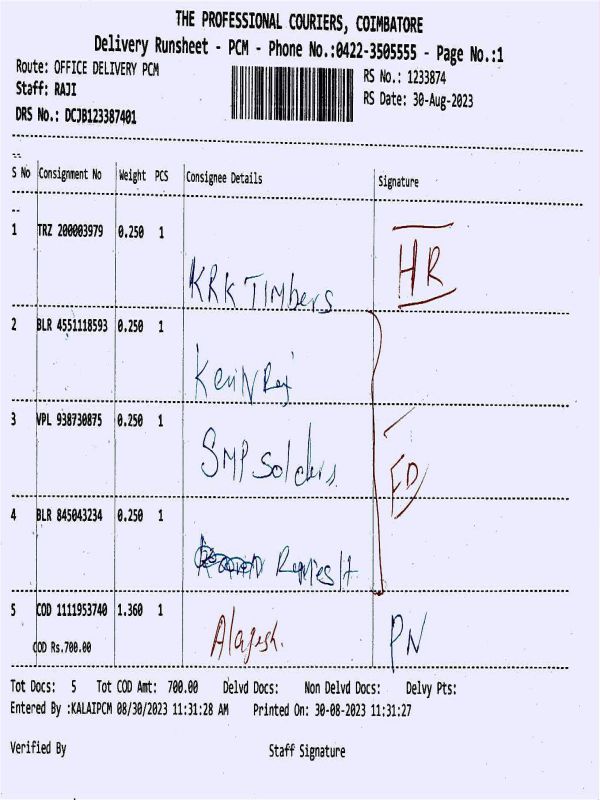 THE PROFESSIONAL COURIERS, COIMBATORE
Delivery Runsheet - PCM - Phone No.:0422-3505555 - Page No.:1
Route: OFFICE DELIVERY PCM
RS No.: 1233874
Staff: RAJI
RS Date: 30-Aug-2023
DRS No.: DCJB123387401
S No Consignment No Weight PCS Consignee Details Signature
1 TRZ 200003979 0.250 1
KRK TIMbers HR
2 BLR 4551118593 0.250 1
3 VPL 938730875 0.250 1
SMP
4 BLR 845043234 0.250 1
5 COD 1111953740 1.360 1
COD Rs.700.00
Alagesh. PN
Tot Docs: 5 Tot COD Amt: 700.00 Delvd Docs: Non Delvd Docs: Delvy Pts:
Entered By :KALAIPCM 08/30/2023 11:31:28 AM Printed On: 30-08-2023 11:31:27
Verified By Staff Signature